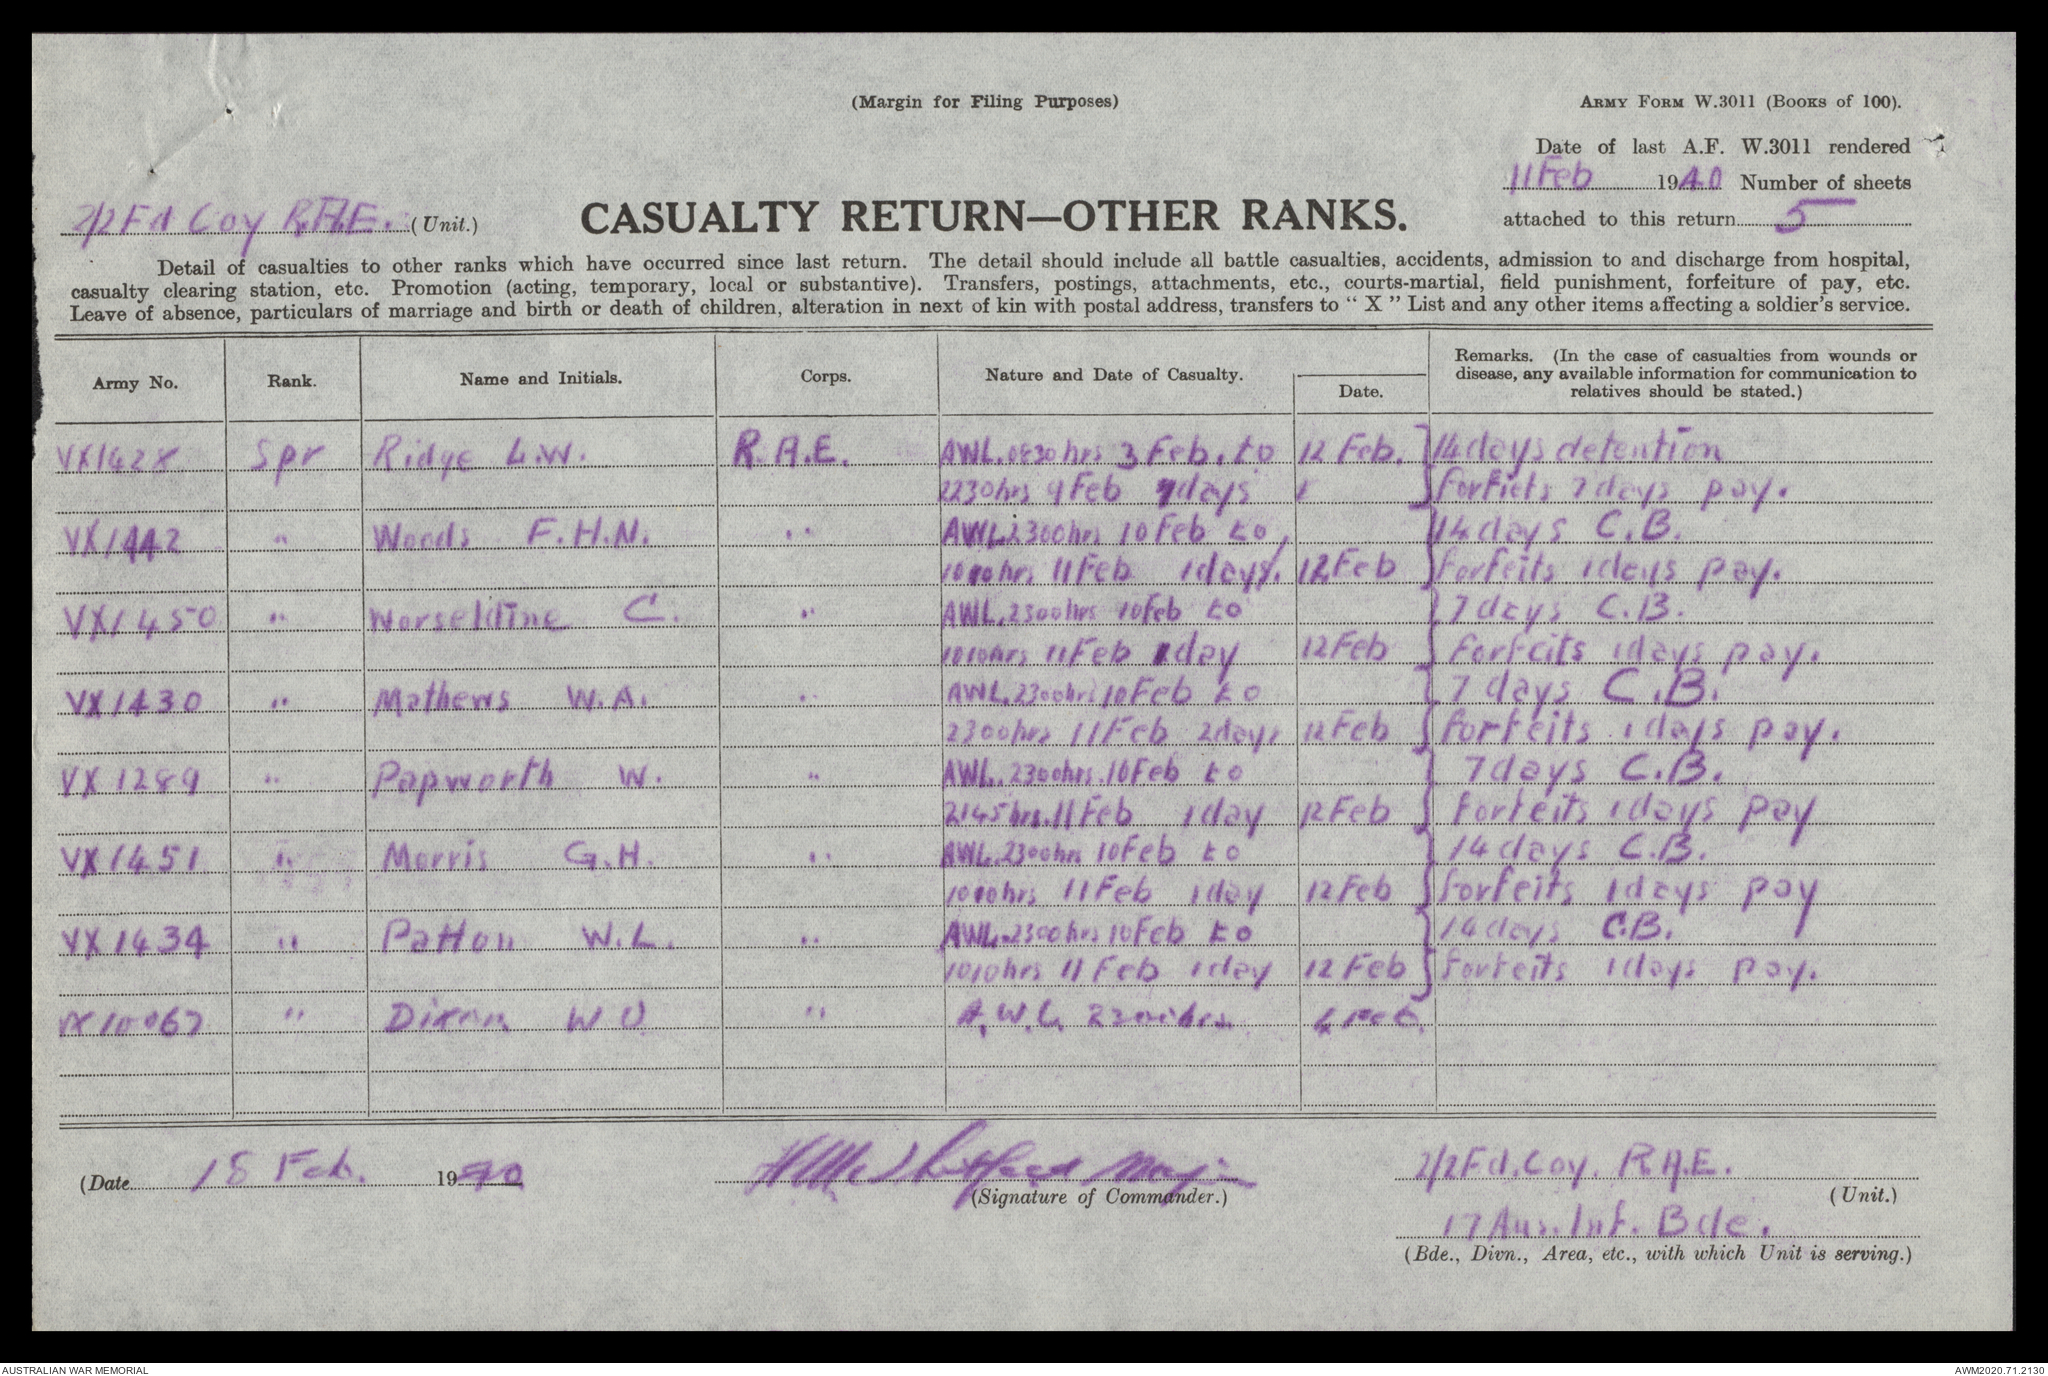 (Margin for Filing Purposes)
ARMY FORM W.3011 (BOOKS of 100).
Date of last A.F. W.3011 rendered
11 Feb 1940 Number of sheets
attached to this return 5
2/2 Fd Coy R.A.E. (Unit.)
CASUALTY RETURN—OTHER RANKS.
Detail of casualties to other ranks which have occurred since last return. The detail should include all battle casualties, accidents, admission to and discharge from hospital,
casualty clearing station, etc. Promotion (acting, temporary, local or substantive). Transfers, postings, attachments, etc., courts-martial, field punishment, forfeiture of pay, etc.
Leave of absence, particulars of marriage and birth or death of children, alteration in next of kin with postal address, transfers to " X " List and any other items affecting a soldier's service.
Army No. Rank. Name and Initials. Corps. Nature and Date of Casualty. Date. Remarks. (In the case of casualties from wounds or
disease, any available information for communication to
relatives should be stated.)
Spr Ridge L.W. R.A.E. AWL. 0830hrs 3 Feb. to 12 Feb. 14 days detention
2230hrs 9 Feb 7days forfiets 7 days pay.
VX1442 " Woods F.H.N. " AWL 2300hrs 10 Feb to 14 days C.B.
1010hrs 11 Feb 1days. 12 Feb forfeits 1days pay.
VX1450 " Worseldine C. " AWL. 2300hrs 10 Feb to 7 days C.B.
1010hrs 11 Feb 1day 12 Feb forfeits 1days pay.
VX1430 " Mathews W.A. " AWL. 2300hrs 10 Feb to 7 days C.B.
2300hrs 11 Feb 2days 12 Feb forfeits 1days pay.
VX1289 " Papworth W. " AWL. 2300hrs. 10 Feb to 7days C.B.
2145hrs. 11 Feb 1day 12 Feb forfeits 1days pay
VX1451 " Morris G.H. " AWL. 2300hrs 10 Feb to 14 days C.B.
1010hrs 11 Feb 1day 12 Feb forfeits 1days pay
VX1434 " Patton W.L. " AWL. 2300hrs 10 Feb to 14 days C.B.
1010hrs 11 Feb 1day 12 Feb forfeits 1days pay.
VX10067 " Dixon W O " A.W.L. 2300hrs Feb.
(Date 18 Feb. 1940 Major 2/2 Fd. Coy. R.A.E.
(Signature of Commander.) (Unit.)
17 Aus. Inf. Bde.
(Bde., Divn., Area, etc., with which Unit is serving.)
AUSTRALIAN WAR MEMORIAL AWM2020.71.2130